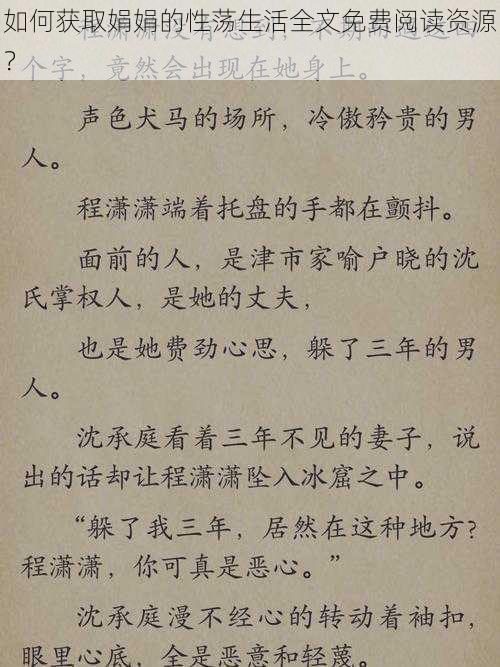 如何获取娟娟的性荡生活全文免费阅读资源
?
程潇潇没有想到，不期而遇这四
个字，竟然会出现在她身上。
声色犬马的场所，冷傲矜贵的男
人。
程潇潇端着托盘的手都在颤抖。
面前的人，是津市家喻户晓的沈
氏掌权人，是她的丈夫，
也是她费劲心思，躲了三年的男
人。
沈承庭看着三年不见的妻子，说
出的话却让程潇潇坠入冰窟之中。
“躲了我三年，居然在这种地方?
程潇潇，你可真是恶心。”
沈承庭漫不经心的转动着袖扣，
眼里心底，全是恶意和轻蔑。